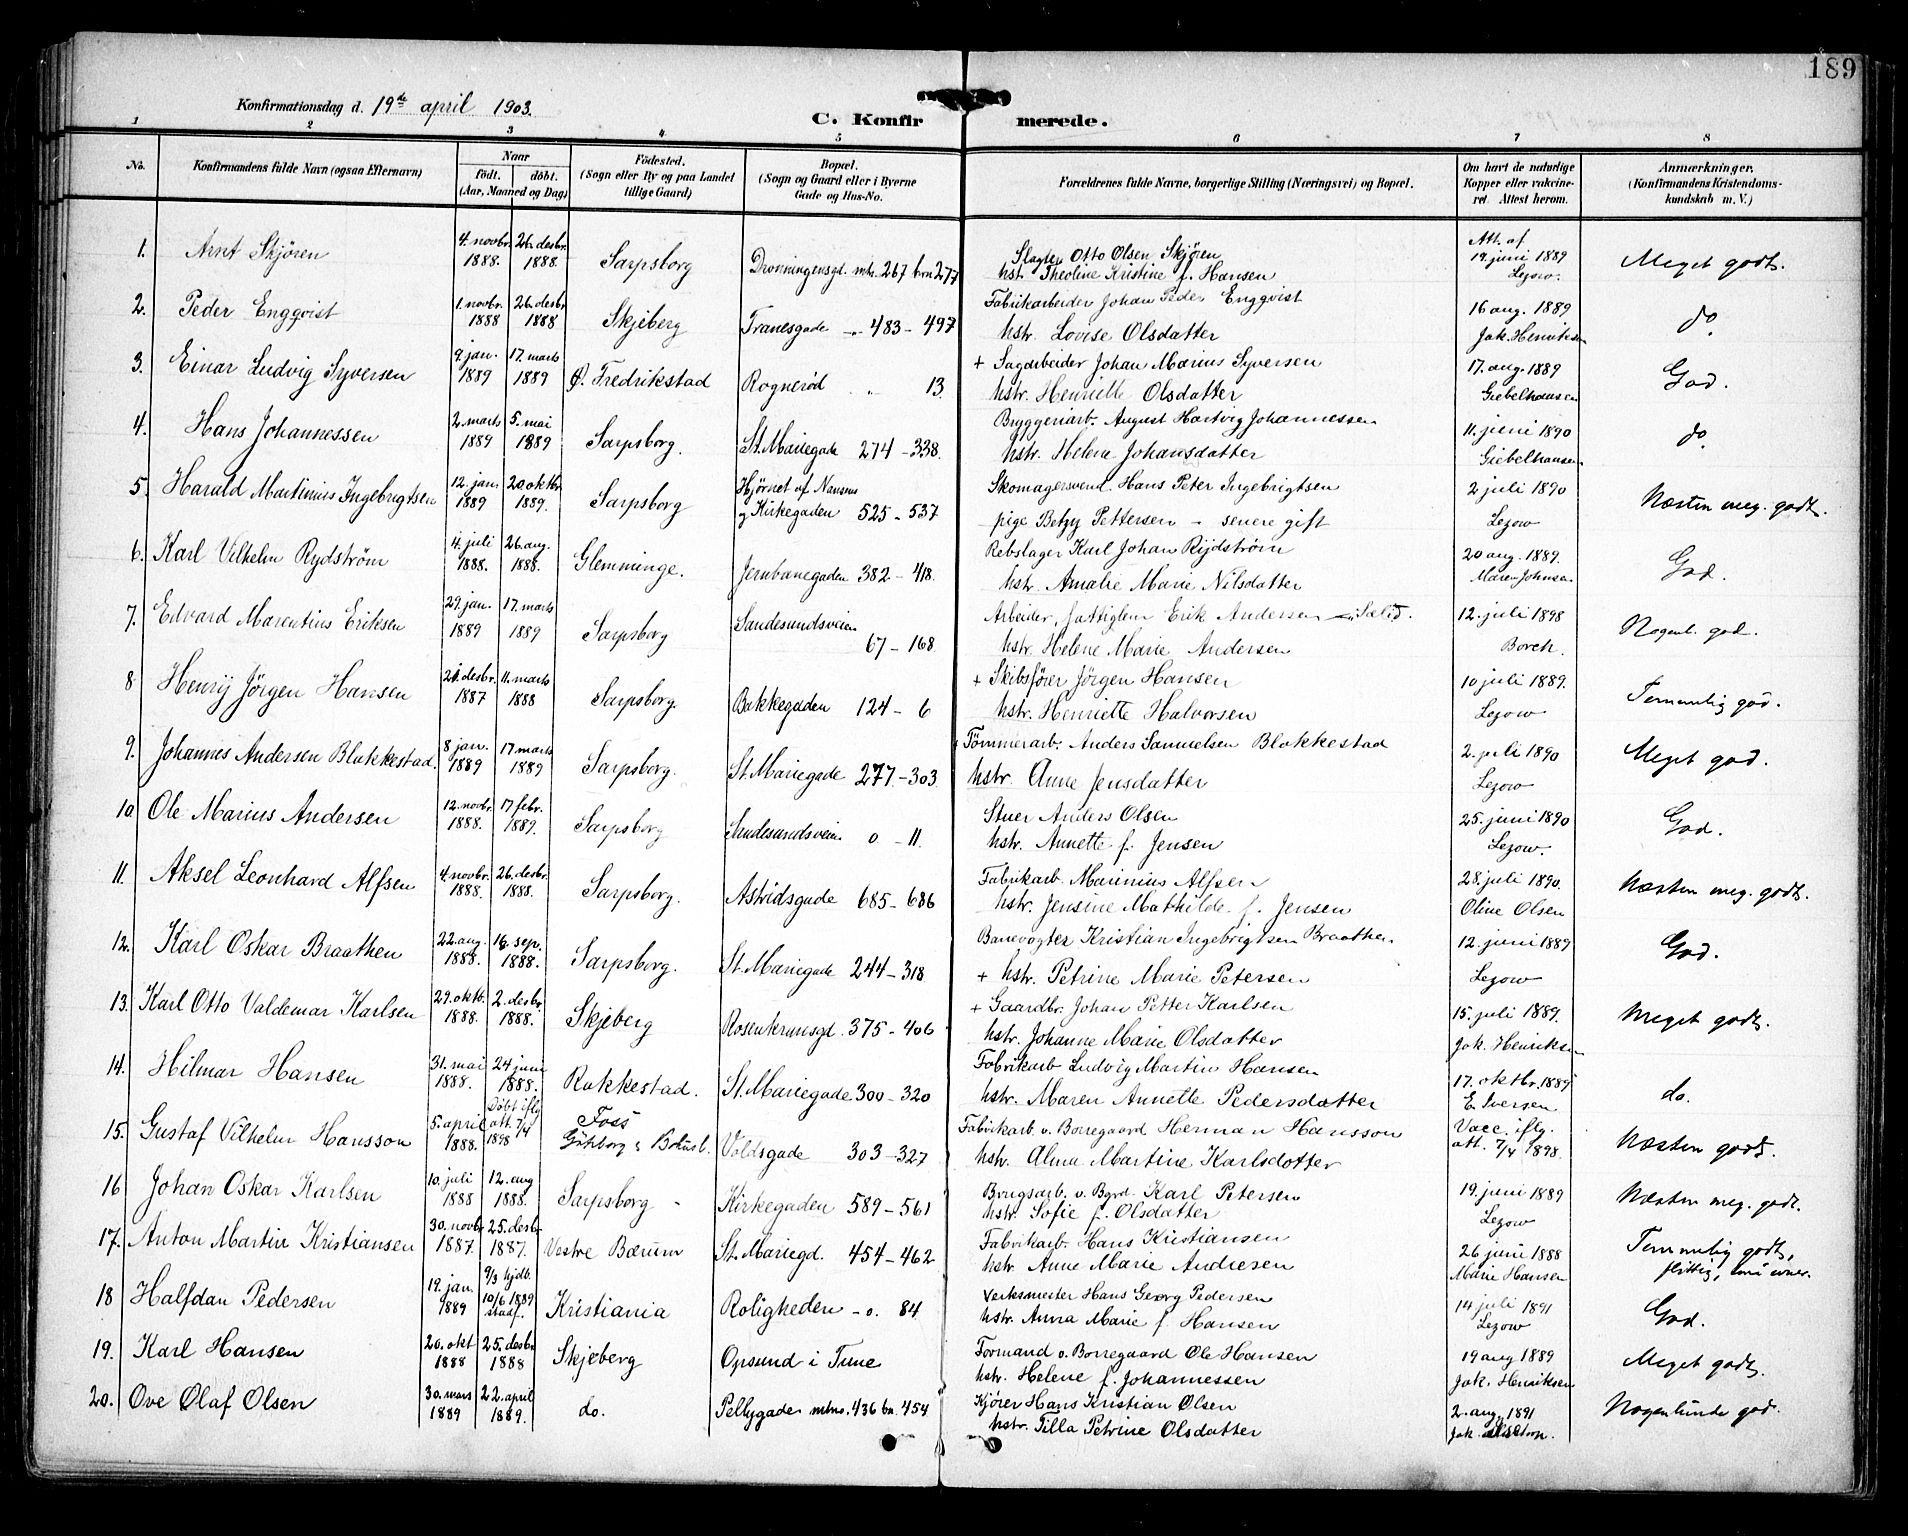 189
Konfirmationsdag d. 19de april 1903.
C. Konfirmerede.
1 2 3 4 5 6 7 8
No. Konfirmandens fulde Navn (ogsaa Efternavn) Naar født. døbt. (Aar, Maaned og Dag) Fødested. (Sogn eller By og paa Landet tillige Gaard) Bopæl. (Sogn og Gaard eller i Byerne Gade og Hus-No. Forældrenes fulde Navne, borgerlige Stilling (Næringsvei) og Bopæl. Om havt de naturlige Kopper eller vakcineret. Attest herom. Anmærkninger. (Konfirmandens Kristendomskundskab m. V.)
1. Arnt Skjøren 4. novbr. 1888. 26. desbr. 1888. Sarpsborg Dronningensgd. mtr. 267 brn 277 Slagter Otto Olsen Skjøren hst. Theoline Kristine f. Hansen Att. af 19. juni 1889 Lezow. Meget godt.
2. Peder Engqvist 1. novbr. 1888 26. desbr. 1888 Skjeberg Tranesgade „ 483 - 497 Fabrikarbeider Johan Peder Engqvist hstr. Lovise Olsdatter 16 aug. 1889 Jak. Henriksen do
3. Einar Ludvig Syversen 9. jan. 1889 17. marts 1889 Ø. Fredrikstad Rognerød „ 13 + Sagarbeider Johan Marius Syversen hstr. Henriette Olsdatter 17. aug. 1889 Giebelhausen God.
4. Hans Johannessen 2. marts 1889 5. mai 1889 Sarpsborg. St. Mariegade 274 - 338. Bryggeriarb. August Hartvig Johannessen hstr. Helene Johansdatter 11. juni 1890 Giebelhausen do
5. Harald Martinius Ingebrigtsen 12. jan. 1889 20 oktbr. 1889. Sarpsborg Hjørnet af Nansens og Kirkegaden 525 - 537 Skomagersvend Hans Peter Ingebrigtsen pige Betzy Pettersen - senere gift 2 juli 1890 Lezow Næsten meg. godt.
6. Karl Vilhelm Rydstrøm 4. juli 1888. 26. aug. 1888. Glemminge. Jernbanegaden 382 - 418. Rebslager Karl Johan Rydstrøm hst. Amalie Marie Nilsdatter 20 aug. 1889. Maren Johnsen God.
7. Edvard Marentius Eriksen 29. jan. 1889 17. marts 1889 Sarpsborg Sandesundsveien 67 - 168 Arbeider, fattiglem Erik Andersen hstr. Helene Marie Andersen 12. juli 1898 Borch. Nogenl. god.
8 Henrij Jørgen Hansen 21. desbr. 1887 11. marts 1888 Sarpsborg. Bakkegaden 124 - 6 + Skibsfører Jørgen Hansen hstr. Henriette Halvorsen 10 juli 1889. Lezow Temmelig god.
9. Johannes Andersen Blakkestad. 8 jan. 1889 17 marts 1889 Sarpsborg. St. Mariegade 277 - 303 + Tømmerarb. Anders Samuelsen Blakkestad hstr. Anne Jensdatter 2. juli 1890 Lezow Meget god.
10. Ole Marius Andersen 12. novbr. 1888. 17 febr. 1889. Sarpsborg Sandesundsveien 0 - 11. Stuer Anders Olsen hstr. Annette f. Jensen 25. juni 1890 Lezow. God.
11. Aksel Leonhard Alfsen 4. novbr. 1888. 26. desbr. 1888. Sarpsborg. Astridsgade 685 - 686 Fabrikarb. Marinius Alfsen hstr. Jensine Mathilde f. Jensen 28. juli 1890. Oline Olsen Næsten meg. godt.
12. Karl Oskar Braathen 22. aug. 1888. 16. sep. 1888. Sarpsborg. St. Mariegade 244 - 318 Banevogter Kristian Ingebrigtsen Braathen + hstr. Petrine Marie Petersen 12. juni 1889 Lezow God.
13. Karl Otto Valdemar Karlsen 29. oktb. 1888. 2. desbr. 1888. Skjeberg Rosenkransgd. 375 - 406 + Gaardbr. Johan Petter Karlsen hstr. Johanne Marie Olsdatter 15. juli 1889. Jak. Henriksen Meget godt.
14. Hilmar Hansen 31. mai 1888. 24 juni 1888. Rakkestad. St. Mariegade 300 - 320 Fabrikarb Ludvig Martin Hansen hstr. Maren Annette Pedersdatter 17. oktbr. 1889 E. Iversen do.
15. Gustaf Vilhelm Hansson 5. april 1888. Døbt iflg. att. 7/4 1898 Foss Göteborg & Bohusl. Voldsgade 303 - 327 Fabrikarb. v. Borregaard Herman Hansson hstr. Alma Martine Karlsdotter Vacc. iflg. att. 7/4 1898. Næsten godt.
16 Johan Oskar Karlsen 10. juli 1888 12. aug 1888. Sarpsborg - Kirkegaden 589 - 561 Brugsarb. v. Bgrd. Karl Petersen hstr. Sofie f. Olsdatter 19. juni 1889 Lezow Næsten meg. godt.
17. Anton Martin Kristiansen 30. novbr 1887. 25. desbr 1887. Vestre Bærum St. Mariegd. 454 - 462 Fabrikarb. Hans Kristiansen hstr. Anne Marie Andresen 26 juni 1888 Marie Hansen Temmelig godt, flittig, små evner.
18 Halfdan Pedersen 19. jan. 1889 9/3 hjdb. 10/6 1889 stadf. Kristiania Roligheden - 0. 84 Verksmester Hans Georg Pedersen hstr. Anna Marie f. Hansen 14 juli 1891 Lezow God.
19. Karl Hansen 20. okt 1888 25. desbr 1888 Skjeberg Opsund i Tune Formand v. Borregaard Ole Hansen hstr. Helene f. Johannessen 19 aug 1889 Jak. Henriksen Meget godt.
20. Ove Olaf Olsen 30. mars 1889 22. april 1889. do. Pellygade mtno. 436 bn. 454 Kjører Hans Kristian Olsen hstr. Tilla Petrine Olsdatter 2. aug. 1891 Jak. Nogenlunde god.